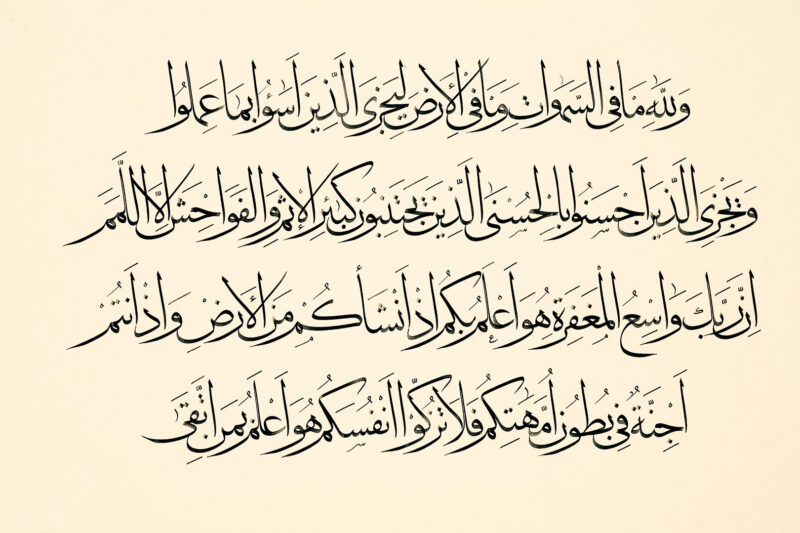 وَلِلَّهِ مَا فِي السَّمٰوَاتِ وَمَا فِي الْأَرْضِ لِيَجْزِيَ الَّذِينَ أَسَاءُوا بِمَا عَمِلُوا
وَيَجْزِيَ الَّذِينَ أَحْسَنُوا بِالْحُسْنَى الَّذِينَ يَجْتَنِبُونَ كَبَائِرَ الْإِثْمِ وَالْفَوَاحِشَ إِلَّا اللَّمَمَ
اِنَّ رَبَّكَ وَاسِعُ الْمَغْفِرَةِ هُوَ اَعْلَمُ بِكُمْ اِذْ اَنْشَأَكُمْ مِنَ الْأَرْضِ وَاِذْ اَنْتُمْ
اَجِنَّةٌ فِي بُطُونِ اُمَّهَاتِكُمْ فَلَا تُزَكُّوا اَنْفُسَكُمْ هُوَ اَعْلَمُ بِمَنِ اتَّقَى